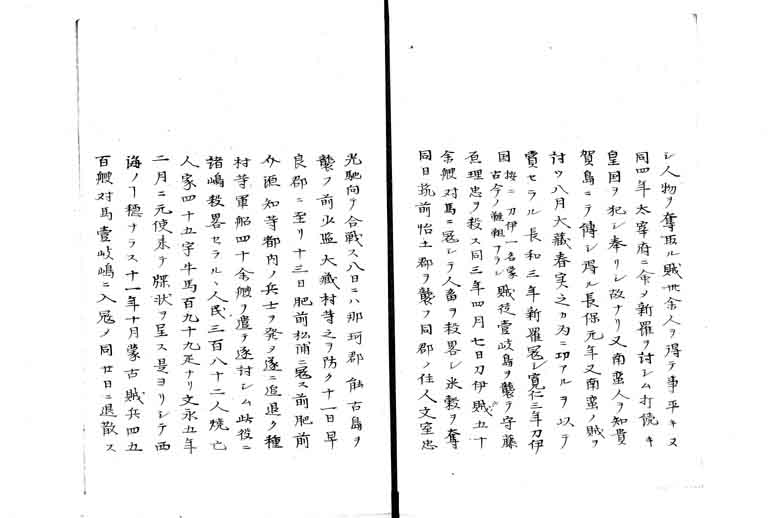 シ人物ヲ奪取ル賊卅余人ヲ得テ事平キヌ
同四年太宰府ニ令メ新羅ヲ討シム打続キ
皇国ヲ犯シ奉リシ故ナリ又南蛮人ヲ知貴
賀島ニテ傳シ得ル長保元年又南蛮ノ賊ヲ
討ツ八月大藏春実之カ為ニ功アルヲ以テ
賞セラル長和三年新羅冦シ寛仁三年刀伊
国 按ニ刀伊一名蒙古今ノ韃靼ナラン 賊徒壹岐島ヲ襲テ守藤
原理忠ヲ殺ス同三年四月七日刀伊賊五十
余艘対馬ニ冦シテ人畜ヲ殺畧シ米穀ヲ奪
同日筑前怡土郡ヲ襲フ同郡ノ住人文室忠
光馳向テ合戦ス八日ニハ那珂郡能古島ヲ
襲フ前少監大藏村等之ヲ防ク十一日早
良郡ニ至リ十三日肥前松浦ニ冦ス前肥前
介源知等郡内ノ兵士ヲ発シ遂ニ追退ク種
村等軍船四十余艘ヲ遣テ逐討シム此役ニ
諸嶋殺畧セラルヽ人民三百八十二人焼亡
人家四十五宇牛馬百九十九疋ナリ文永五年
二月ニ元使来テ牒状ヲ呈ス是ヨリシテ西
海ノヿ穏ナラス十一年十月蒙古賊兵四五
百艘対馬壹岐嶋ニ入冦ノ同廿日ニ退散ス